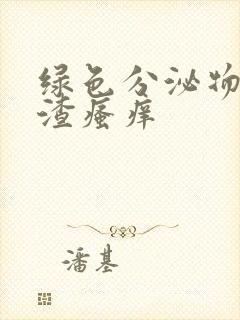 绿色分泌物
渣瘙痒
潘基